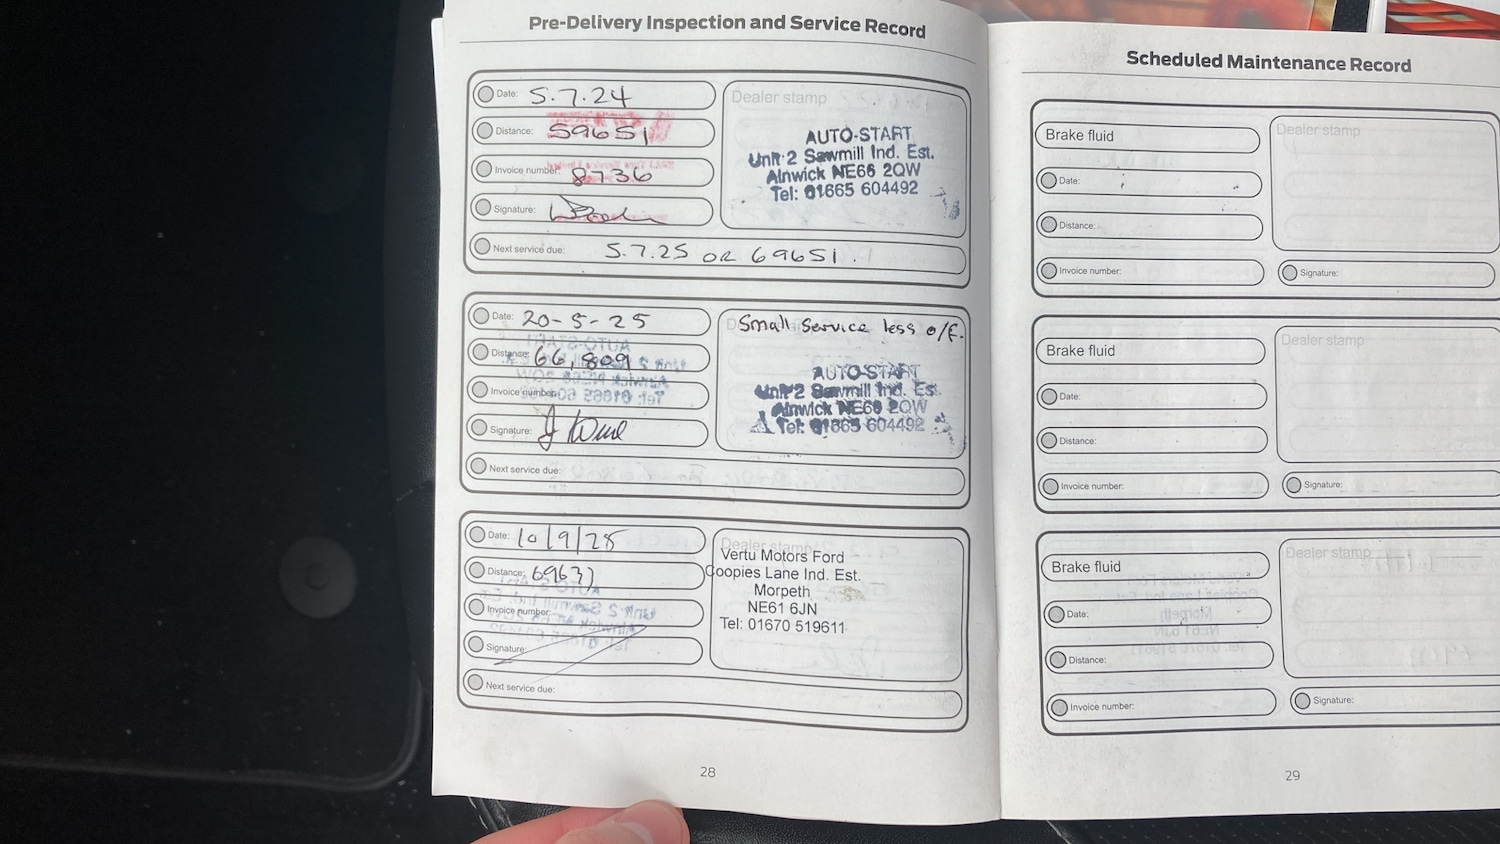 Pre-Delivery Inspection and Service Record
Date: 5.7.24
Distance: 59651
Invoice number: 8736
Signature:
Next service due: 5.7.25 OR 69651.
Dealer stamp
AUTO-START
Unit 2 Sawmill Ind. Est.
Alnwick NE66 2QW
Tel: 01665 604492
Date: 20-5-25
Distance: 66,809
Invoice number:
Signature:
Next service due:
Small Service less o/F.
AUTO-START
Unit 2 Sawmill Ind. Est.
Alnwick NE66 2QW
Tel: 01665 604492
Date: 10/9/25
Distance: 69637
Invoice number:
Signature:
Next service due:
Dealer stamp
Vertu Motors Ford
Coopies Lane Ind. Est.
Morpeth
NE61 6JN
Tel: 01670 519611
28
Scheduled Maintenance Record
Brake fluid
Date:
Distance:
Invoice number:
Dealer stamp
Signature:
Brake fluid
Date:
Distance:
Invoice number:
Dealer stamp
Signature:
Brake fluid
Date:
Distance:
Invoice number:
Dealer stamp
Signature:
29